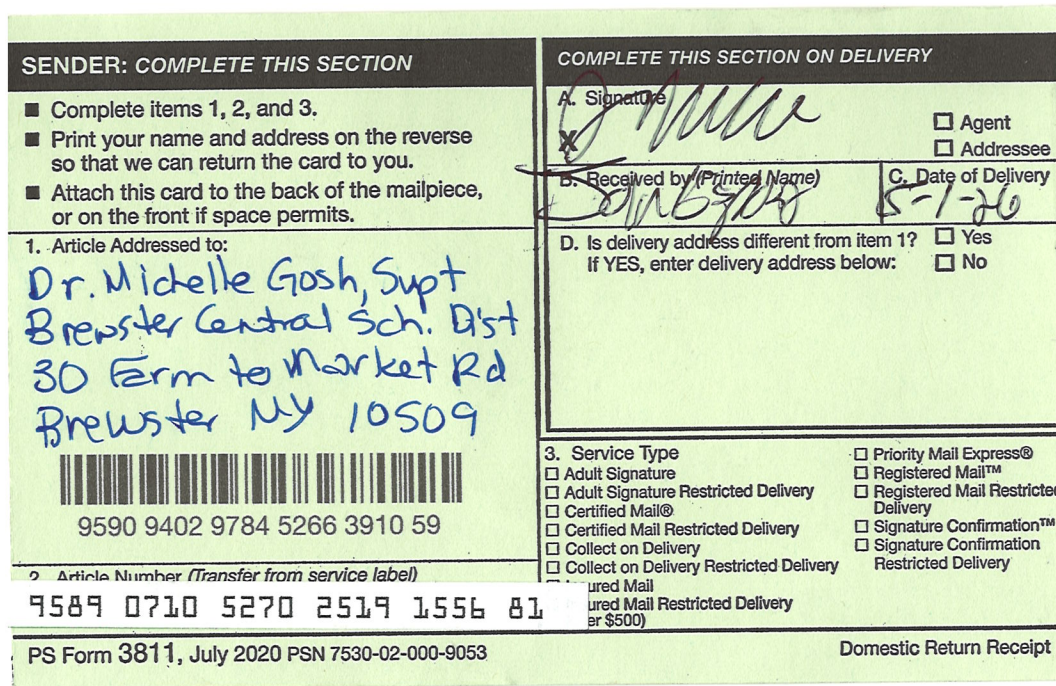 SENDER: COMPLETE THIS SECTION
■ Complete items 1, 2, and 3.
■ Print your name and address on the reverse
so that we can return the card to you.
■ Attach this card to the back of the mailpiece,
or on the front if space permits.
1. Article Addressed to:
Dr. Michelle Gosh, Supt
Brewster Central Sch. Dist
30 Farm to Market Rd
Brewster NY 10509
9590 9402 9784 5266 3910 59
2. Article Number (Transfer from service label)
9589 0710 5270 2519 1556 81
COMPLETE THIS SECTION ON DELIVERY
A. Signature
X
□ Agent
□ Addressee
B. Received by (Printed Name)
C. Date of Delivery
5-1-26
D. Is delivery address different from item 1? □ Yes
If YES, enter delivery address below: □ No
3. Service Type
□ Adult Signature
□ Adult Signature Restricted Delivery
□ Certified Mail®
□ Certified Mail Restricted Delivery
□ Collect on Delivery
□ Collect on Delivery Restricted Delivery
Mail
Mail Restricted Delivery
$500)
□ Priority Mail Express®
□ Registered Mail™
□ Registered Mail
Delivery
□ Signature Confirmation™
□ Signature Confirmation
Restricted Delivery
PS Form 3811, July 2020 PSN 7530-02-000-9053
Domestic Return Receipt